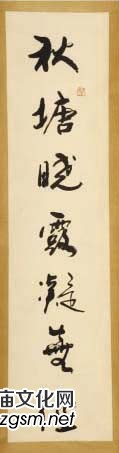 秋塘晓露凝無
庙文化网
zgsm.net